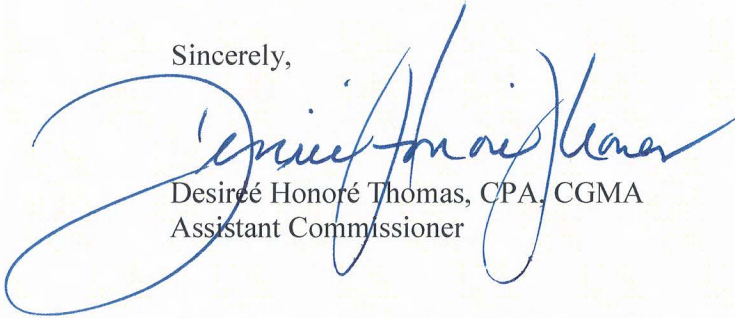 Sincerely,
Desireé Honoré Thomas
Desireé Honoré Thomas, CPA, CGMA
Assistant Commissioner